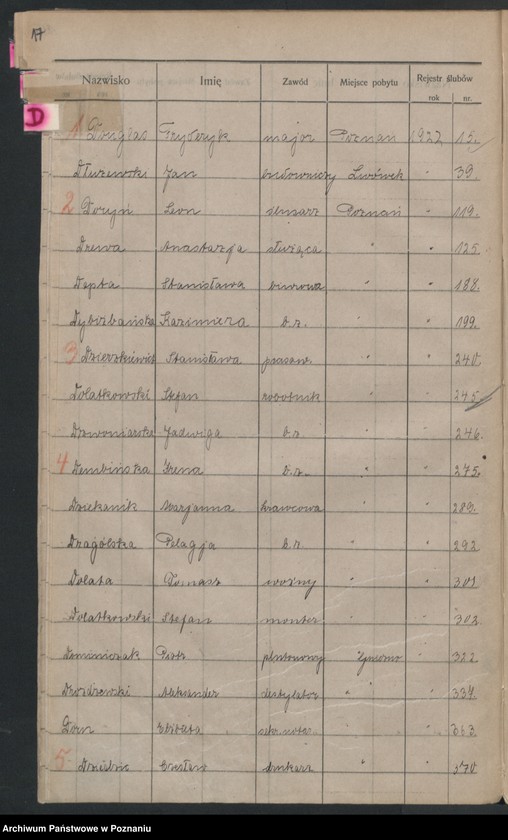 17
Nazwisko Imię Zawód Miejsce pobytu Rejestr ślubów
rok nr.
D
1 Douglas Fryderyk major Poznań 1922 15.
Dłużewski Jan budowniczy Lwówek " 39.
2 Doryń Leon ślusarz Poznań " 119.
Drewa Anastazja służąca " " 125.
Depta Stanisława biurowa " " 188.
Kazimiera b.z. " " 199.
3 Dzierzkiewicz Stanisława prasow. " " 240.
Dolatkowski Stefan robotnik " " 245.
Jadwiga b.z. " " 246.
4 Dembińska Irena b.z. " " 275.
Dziekanik Marjanna krawcowa " " 289.
Dragólska Pelagja b.z. " " 292
Dolata Tomasz woźny " " 301
Dolatkowski Stefan monter " " 302
Dominiczak Piotr plutonowy " 322
Drożdżewski Aleksander destylator " " 337.
Dorn Elżbieta " 363
5 Dzidzic Czesław drukarz " " 370
Archiwum Państwowe w Poznaniu